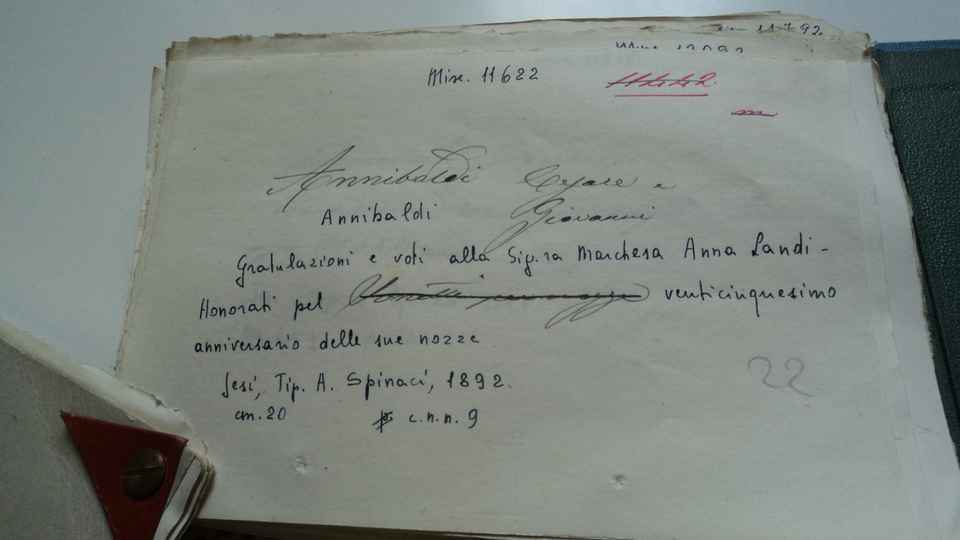 92
Misc. 11622
Annibaldi Cesare e
Annibaldi Giovanni
Gratulazioni e voti alla Sig.ra Marchesa Anna Landi-
Honorati pel venticinquesimo
anniversario delle sue nozze
Jesi, Tip. A. Spinaci, 1892.
22
cm. 20 c.n.n. 9